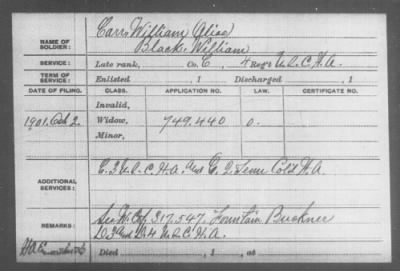 NAME OF SOLDIER: Carr, William Alias
Black, William
SERVICE: Late rank, Co. C, 4 Reg't U.S.C.H.A.
TERM OF SERVICE: Enlisted , 1 Discharged , 1
DATE OF FILING. CLASS. APPLICATION NO. LAW. CERTIFICATE NO.
Invalid,
1901. Oct 2. Widow, 749.440 O.
Minor,
ADDITIONAL SERVICES: C. 2 U.S.C.H.A. and C. 2 Tenn Cold H.A.
REMARKS: See W. Ctf. 317.547. Fountain Buckner
D. 3 and D. 4 U.S.C.H.A.
Died , 1 , at